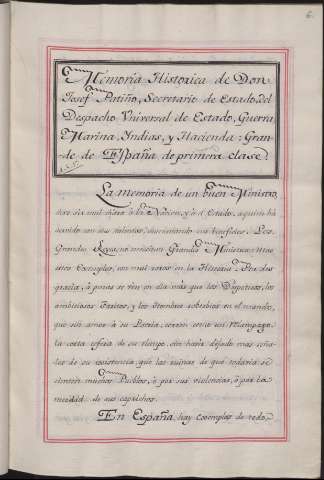 6.
Memoria Historica de Don
Josef Patiño, Secretario de Estado, del
Despacho Universal de Estado, Guerra
Marina, Indias, y Hacienda: Gran-
de de España de primera clase.
La memoria de un buen Ministro,
es mui à la Nacion, y à el Estado, aquien hà
con sus talentos, sus beneficios. Los
Grandes Reyes, necesitan Grandes Ministros: Mas
estos Exemplos, son mui raros en la Historia. Por des-
gracia, à penas se ven en ella mas que los Despoticos, los
ambiciosos, y los Hombres sobervios en el mando,
que sin amor à su Patria,
la corta esfera de su tiempo, no havia dejado mas seña-
les de su existencia, que las ruinas de que todavia se
sienten muchos Pueblos, ò por sus violencias, ò por la
de sus caprichos.
En España, hay exemplos de todo,